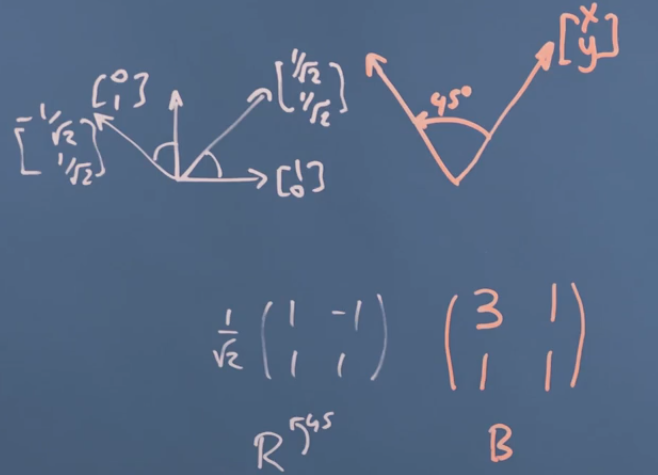 [0 1]
[-1/√2 1/√2]
[1/√2 1/√2]
[1 0]
45°
[x y]
1/√2 (1 -1
1 1)
(3 1
1 1)
R↶45
B